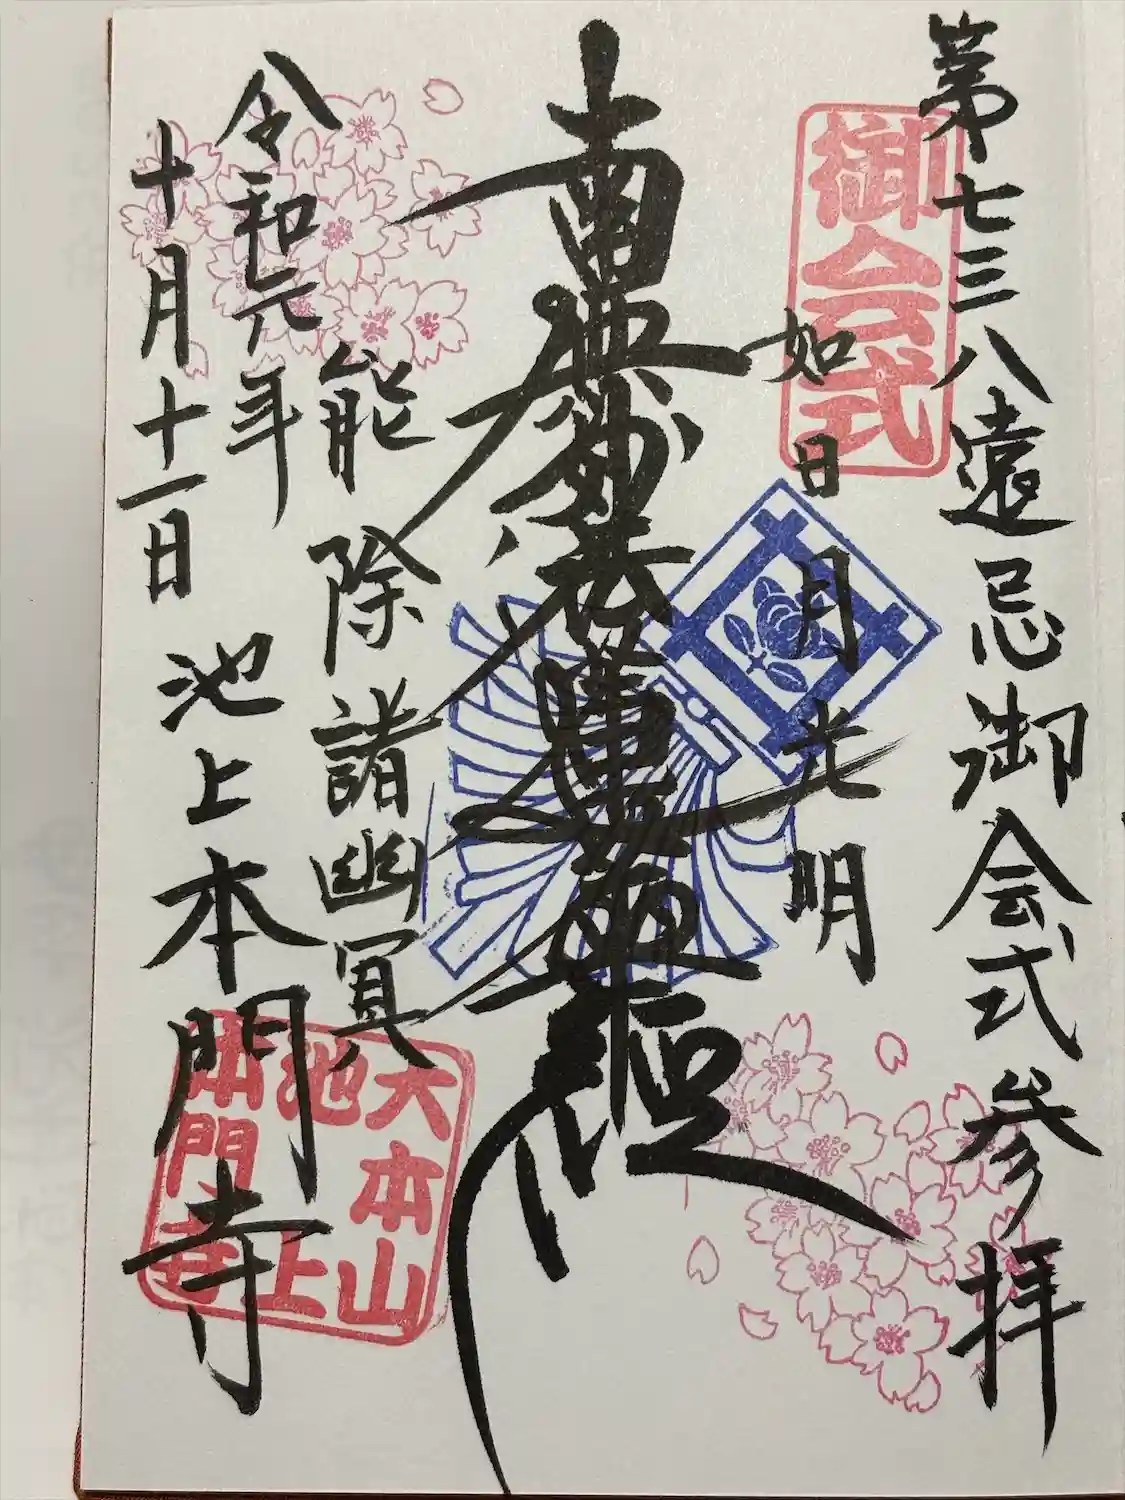 第七三八遠忌御会式参拝
御会式
如日月光明
南無妙法蓮華経
能除諸幽冥
令和元年
十月十一日
池上本門寺
大本山
池上
本門寺